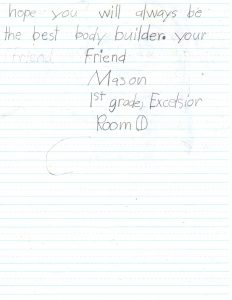 hope you will always be
the best body builder. your
friend Friend
Mason
1st grade, Excelsior
Room 1